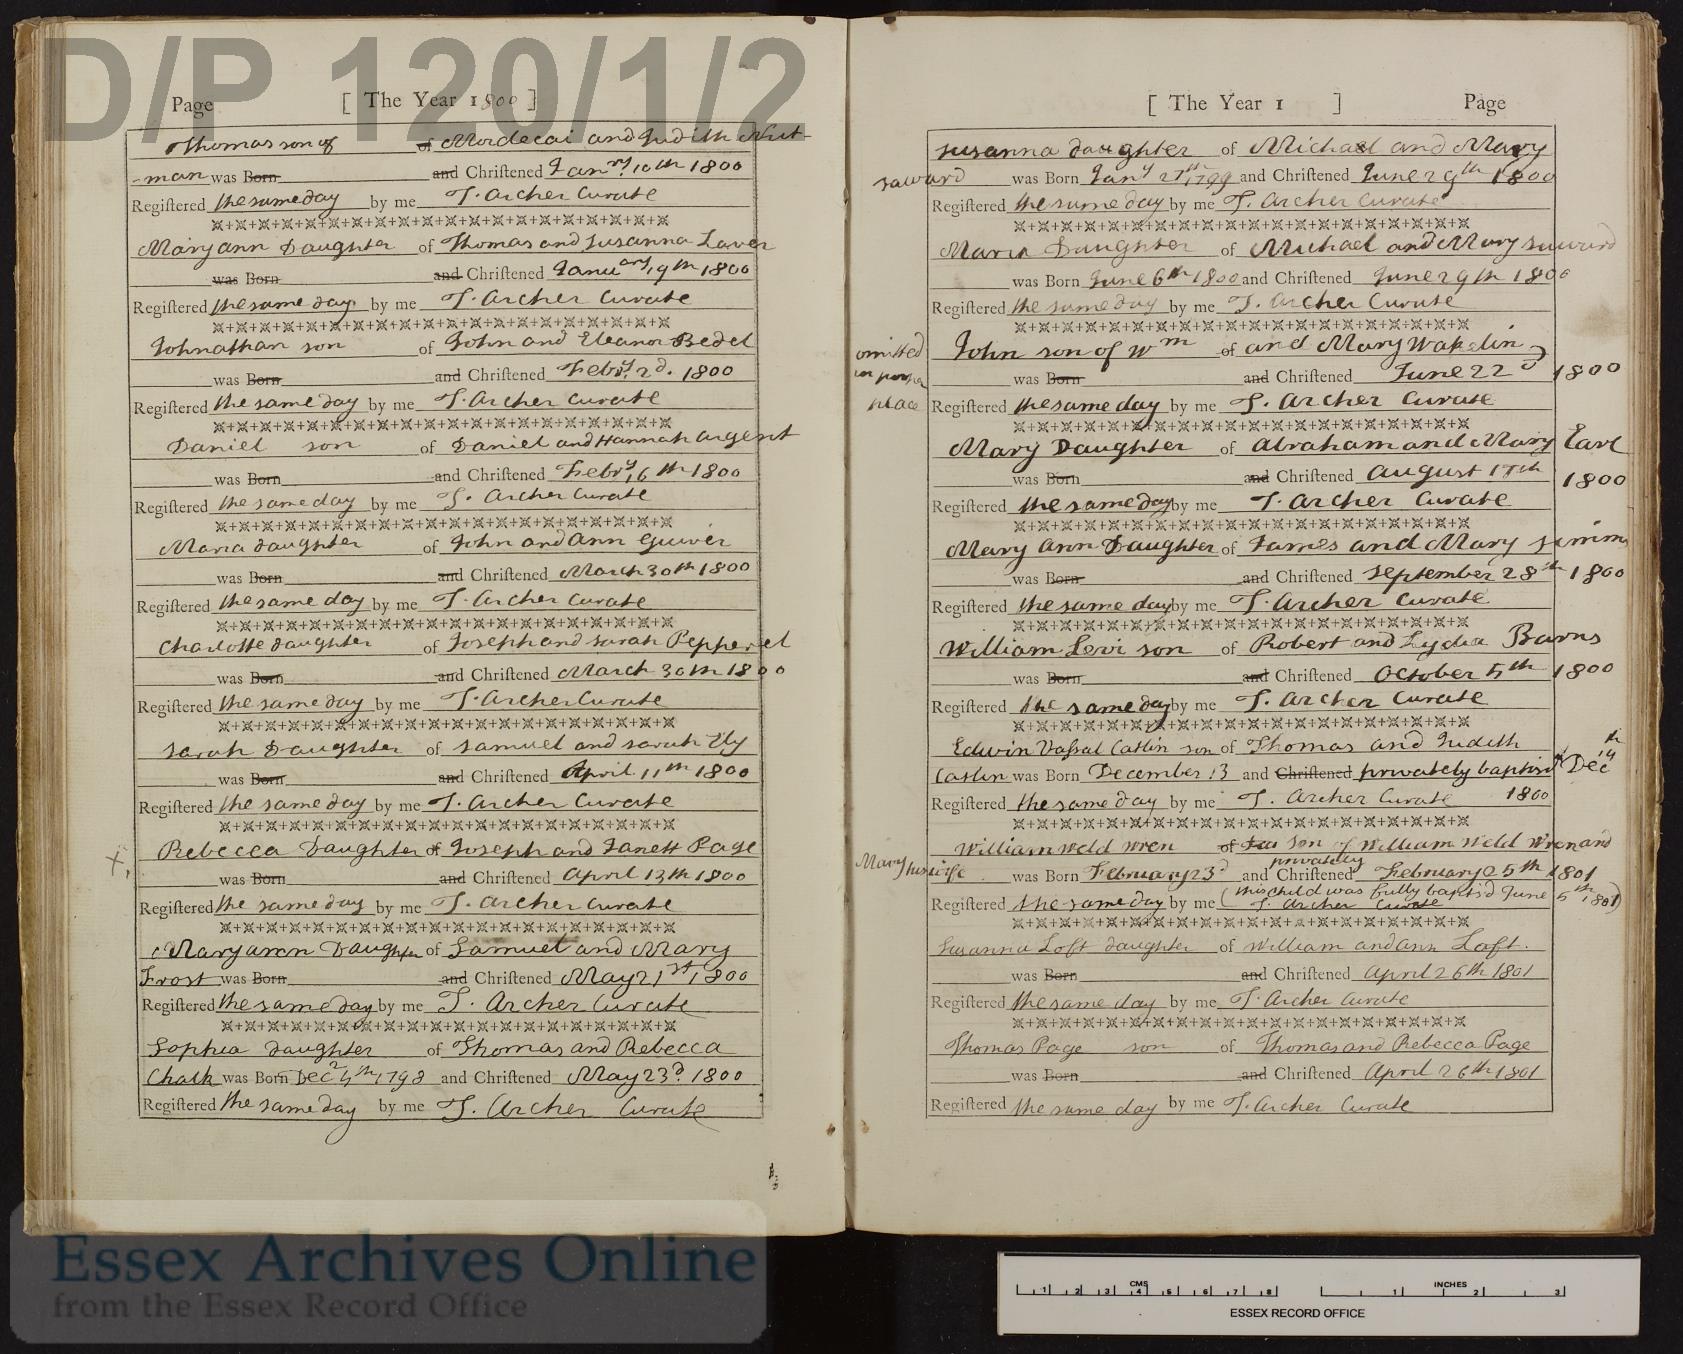 D/P 120/1/2
Page [ The Year 1800 ]
Thomas son of of Mordecai and Judith Nut-
-man was Born and Christened Janry. 10th 1800
Registered the same day by me T. Archer Curate
Mary ann Daughter of Thomas and Susanna Laver
was Born and Christened January 19th 1800
Registered the same day by me T. Archer Curate
Johnathan son of John and Eleanor Bedel
was Born and Christened Febry. 2d. 1800
Registered the same day by me T. Archer Curate
Daniel son of Daniel and Hannah Argent
was Born and Christened Febry 16th 1800
Registered the same day by me T. Archer Curate
Maria daughter of John and Ann Guiver
was Born and Christened March 30th 1800
Registered the same day by me T. Archer Curate
Charlotte daughter of Joseph and Sarah Pepperel
was Born and Christened March 30th 1800
Registered the same day by me T. Archer Curate
Sarah Daughter of Samuel and Sarah Ely
was Born and Christened April 11th 1800
Registered the same day by me T. Archer Curate
Rebecca Daughter of Joseph and Janett Page
x was Born and Christened April 13th 1800
Registered the same day by me T. Archer Curate
Mary ann Daughter of Samuel and Mary
Frost was Born and Christened May 21st, 1800
Registered the same day by me T. Archer Curate
Sophia daughter of Thomas and Rebecca
Chalk was Born Decr 4th, 1798 and Christened May 23d. 1800
Registered the same day by me T. Archer Curate
[ The Year 1 ] Page
Susanna daughter of Michael and Mary
saward was Born Jany 27th 1799 and Christened June 29th 1800
Registered the same day by me T. Archer Curate
Maria Daughter of Michael and Mary Saward
was Born June 6th 1800 and Christened June 29th 1800
Registered the same day by me T. Archer Curate
omitted John son of Wm of and Mary Wakelin
in proper was Born and Christened June 22d 1800
place Registered the same day by me T. Archer Curate
Mary Daughter of Abraham and Mary Earl
was Born and Christened August 17th 1800
Registered the same day by me T. Archer Curate
Mary Ann Daughter of James and Mary Simms
was Born and Christened September 28th 1800
Registered the same day by me T. Archer Curate
William Levi son of Robert and Lydia Barns
was Born and Christened October 5th 1800
Registered the same day by me T. Archer Curate
Edwin Vassal Catlin son of Thomas and Judith
Catlin was Born December 13 and Christened privately baptisd Dec 14th
Registered the same day by me T. Archer Curate 1800
William Weld Wren of son of William Weld Wren and
privately
Mary his wife was Born February 23d and Christened February 25th 1801
(this child was fully baptisd June 5th 1801)
Registered the same day by me T. Archer Curate
Susanna Loft daughter of William and Ann Loft.
was Born and Christened April 26th 1801
Registered the same day by me T. Archer Curate
Thomas Page son of Thomas and Rebecca Page
was Born and Christened April 26th 1801
Registered the same day by me T. Archer Curate
Essex Archives Online
from the Essex Record Office
CMS INCHES
1 2 3 4 5 6 7 8 1 2 3
ESSEX RECORD OFFICE